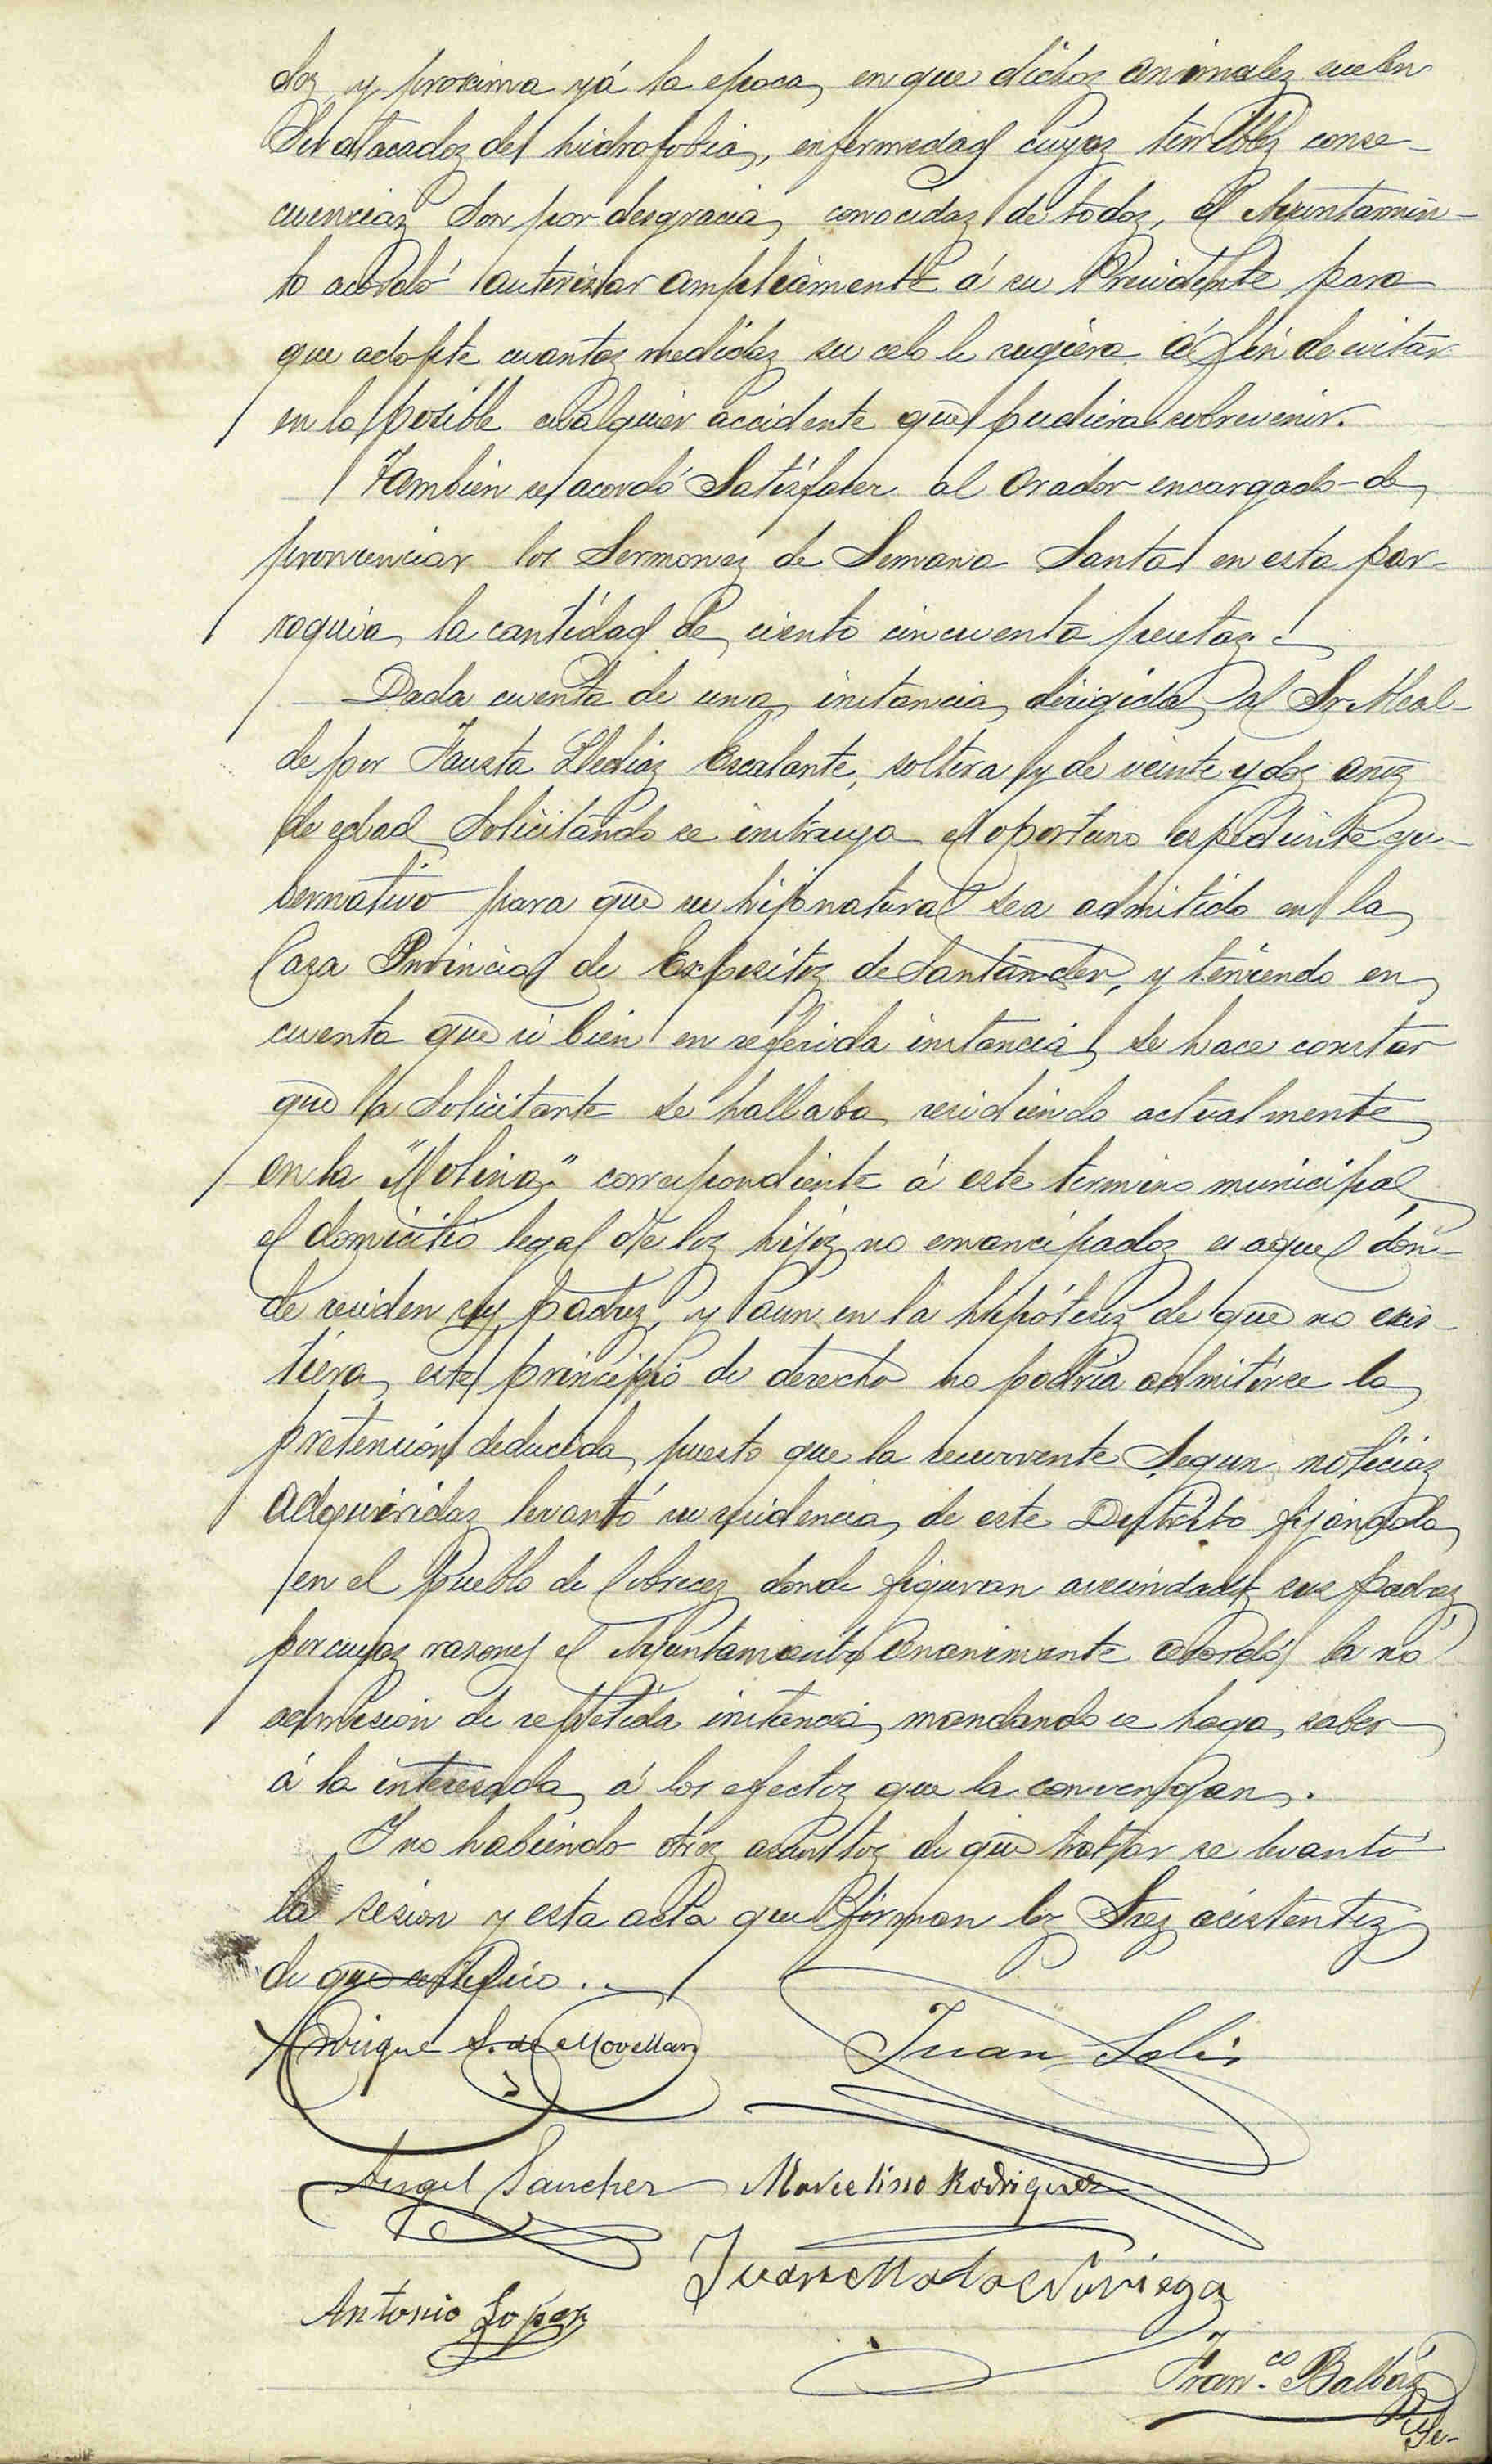 dos y proxima yá la epoca en que dichos animales suelen
Ser atacados de hidrofobia, enfermedad cuyas terribles conse-
cuencias son por desgracia conocidas de todos, el Ayuntamien-
to acordó autorizar ampliamente á su Presidente para
que adopte cuantas medidas su celo le sugiera á fin de evitar
en lo posible cualquier accidente que pudiera sobrevenir.
Tambien se acordó Satisfacer al Orador encargado de
pronunciar los Sermones de Semana Santa en esta par-
roquia la cantidad de ciento cincuenta pesetas.
Dada cuenta de una instancia dirigida al Sr. Alcal-
de por Fausta Escalante, soltera y de veinte y dos años
de edad Solicitando se instruya el oportuno espediente gu-
bernativo para que su hijo natural sea admitido en la
Casa Provincial de Expositos de Santander, y teniendo en
cuenta que si bien en referida instancia se hace constar
que la Solicitante se hallaba residiendo actualmente
en la "Molina" correspondiente á este termino municipal
el domicilio legal de los hijos no emancipados es aquel don-
de residen sus padres, y aun en la hipótesis de que no exis-
tiera este principio de derecho no podria admitirse la
pretension deducida puesto que la recurrente Segun noticias
adquiridas levantó su residencia de este Distrito fijandola
en el pueblo de Cobreces donde figuran avecindados sus padres
por cuyas razones el Ayuntamiento unanimemente acordó la no
admision de repetida instancia mandando se haga saber
á la interesada á los efectos que la convengan.
Y no habiendo otros asuntos de que tratar se levantó
la sesion y esta acta que firman los Sres asistentes
de que certifico..
Enrique S. de Movellan
Juan Solis
Angel Sanchez Marcelino Rodriguez
Juan Noriega
Antonio Lopez
Fran.co Balbas